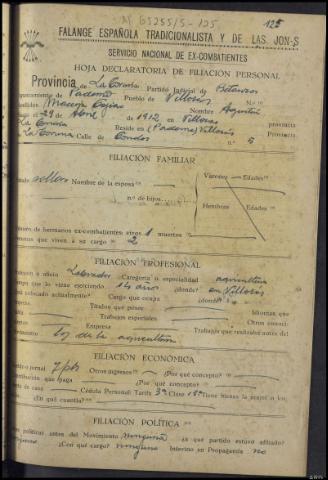 Nº 65255/5-125
125
FALANGE ESPAÑOLA TRADICIONALISTA Y DE LAS JON-S
SERVICIO NACIONAL DE EX-COMBATIENTES
HOJA DECLARATORIA DE FILIACIÓN PERSONAL
Provincia de La Coruña Partido Judicial de Betanzos
Paderne Pueblo de Villozás N.º
Nombre Agustín
29 de Abril de 1912 en Villozás provincia
La Coruña Reside en (Paderne) Villozás provincia
La Coruña Calle de n.º 5
FILIACIÓN FAMILIAR
soltero Nombre de la esposa Varones Edades
n.º de hijos
Hembras Edades
de hermanos ex-combatientes vivos 1 muertos
que viven a su cargo 2
FILIACIÓN PROFESIONAL
u oficio Labrador Categoría o especialidad agricultura
que lo viene ejerciendo 14 años ¿dónde? en Villozás
colocado actualmente? Cargo que ocupa ¿dónde?
Títulos que posee Idiomas que
Trabajos especiales Otros conoci-
Empresa Trabajos que realizaba antes del
los de la agricultura
FILIACIÓN ECONÓMICA
jornal 7 pts Otros ingresos ¿Por qué concepto?
que paga ¿Por qué concepto?
Cédula Personal: Tarifa 3ª Clase Tiene bienes la mujer o los
¿En qué cuantía?
FILIACIÓN POLÍTICA
políticas antes del Movimiento ninguna ¿a qué partido estuvo afiliado?
¿Con qué cargo? ninguno Intervino en Propaganda no